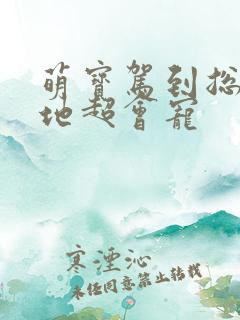 萌寶駕到总
地超會寵
寒湮沁
未经同意禁止转载